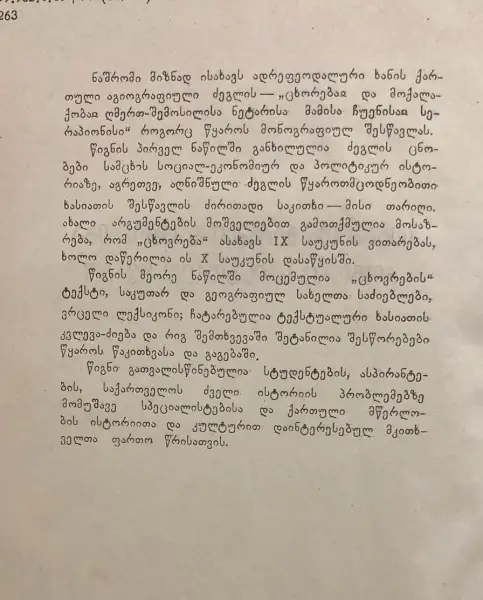 263
ნაშრომი მიზნად ისახავს ადრეფეოდალური ხანის ქარ-
თული აგიოგრაფიული ძეგლის — „ცხორებაჲ და მოქალა-
ქობაჲ ღმერთ-შემოსილისა ნეტარისა მამისა ჩუენისაჲ სე-
რაპიონისი“ როგორც წყაროს მონოგრაფიულ შესწავლას.
წიგნის პირველ ნაწილში განხილულია ძეგლის ცნო-
ბები სამცხის სოციალ-ეკონომიურ და პოლიტიკურ ისტო-
რიაზე, აგრეთვე, აღნიშნული ძეგლის წყაროთმცოდნეობითი
ხასიათის შესწავლის ძირითადი საკითხი — მისი თარიღი.
ახალი არგუმენტების მოშველიებით გამოთქმულია მოსაზ-
რება, რომ „ცხოვრება“ ასახავს IX საუკუნის ვითარებას,
ხოლო დაწერილია ის X საუკუნის დასაწყისში.
წიგნის მეორე ნაწილში მოცემულია „ცხოვრების“
ტექსტი, საკუთარ და გეოგრაფიულ სახელთა საძიებლები,
ვრცელი ლექსიკონი; ჩატარებულია ტექსტუალური ხასიათის
კვლევა-ძიება და რიგ შემთხვევაში შეტანილია შესწორებები
წყაროს წაკითხვასა და გაგებაში.
წიგნი გათვალისწინებულია სტუდენტების, ასპირანტე-
ბის, საქართველოს ძველი ისტორიის პრობლემებზე
მომუშავე სპეციალისტებისა და ქართული მწერლო-
ბის ისტორიითა და კულტურით დაინტერესებულ მკითხ-
ველთა ფართო წრისათვის.